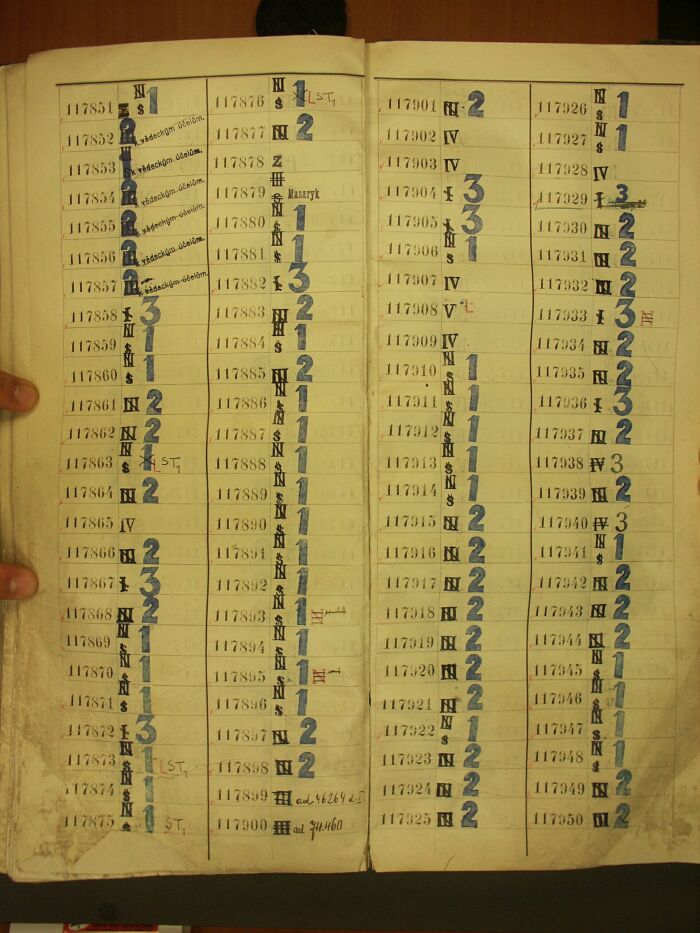 117851 N s 1
117852 2 k vědeckým účelům.
117853 1 k vědeckým účelům.
117854 2 k vědeckým účelům.
117855 2 k vědeckým účelům.
117856 2 k vědeckým účelům.
117857 2 k vědeckým účelům.
117858 I 3
117859 N s 1
117860 N s 1
117861 N 2
117862 N 2
117863 N s 1 L ST1
117864 N 2
117865 IV
117866 N 2
117867 I 3
117868 N 2
117869 N s 1
117870 N s 1
117871 N s 1
117872 I 3
117873 N s 1 L ST1
117874 N s 1
117875 N s 1 ST1
117876 N s 1 L ST1
117877 N 2
117878 Z
117879 III s Masaryk
117880 N s 1
117881 N s 1
117882 I 3
117883 N 2
117884 N s 1
117885 N 2
117886 N s 1
117887 N s 1
117888 N s 1
117889 N s 1
117890 N s 1
117891 N s 1
117892 N s 1
117893 N s 1 III.
117894 N s 1
117895 N s 1 III.
117896 N s 1
117897 N 2
117898 N 2
117899 III ad 46264 d I
117900 III ad 74.460
117901 N 2
117902 IV
117903 IV
117904 I 3
117905 I 3
117906 N s 1
117907 IV
117908 V L
117909 IV
117910 N s 1
117911 N s 1
117912 N s 1
117913 N s 1
117914 N s 1
117915 N 2
117916 N 2
117917 N 2
117918 N 2
117919 N 2
117920 N 2
117921 N 2
117922 N s 1
117923 N 2
117924 N 2
117925 N 2
117926 N s 1
117927 N s 1
117928 IV
117929 I 3
117930 N 2
117931 N 2
117932 N 2
117933 I 3 III.
117934 N 2
117935 N 2
117936 I 3
117937 N 2
117938 IV 3
117939 N 2
117940 IV 3
117941 N s 1
117942 N 2
117943 N 2
117944 N 2
117945 N s 1
117946 N s 1
117947 N s 1
117948 N s 1
117949 N 2
117950 N 2